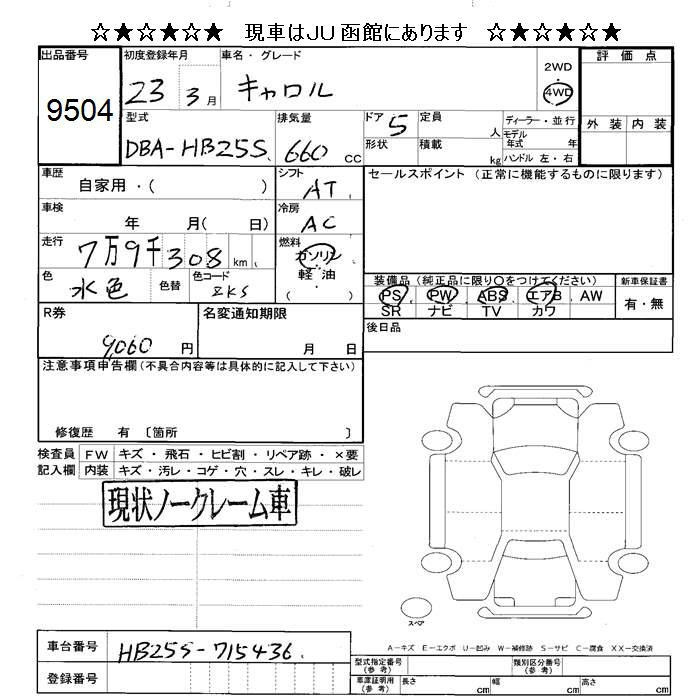 ☆★☆★☆★ 現車はJU函館にあります ☆★☆★☆★
出品番号 初度登録年月 車名・グレード 評価点
9504 23 3月 キャロル 2WD 4WD
型式 排気量 ドア 5 定員 人 ディーラー・並行 外装 内装
DBA-HB25S 660 CC 形状 積載 kg モデル年式 年
ハンドル 左・右
車歴 自家用・( ) シフト AT セールスポイント (正常に機能するものに限ります)
車検 年 月( 日) 冷房 AC
走行 7万9千308 km 燃料 ガソリン 軽油 ( )
色 水色 色替 色コード ZKS
装備品 (純正品に限り○をつけてください) 新車保証書
PS PW ABS エアB AW 有・無
SR ナビ TV カワ
R券 名変通知期限 後日品
9,060 円 月 日
注意事項申告欄 (不具合内容等は具体的に記入して下さい)
修復歴 有 〔箇所 〕
検査員 FW キズ・飛石・ヒビ割・リペア跡・×要
記入欄 内装 キズ・汚レ・コゲ・穴・スレ・キレ・破レ
現状ノークレーム車
スペア
A-キズ E-エクボ U-凹み W-補修跡 S-サビ C-腐食 XX-交換済
車台番号 HB25S-715436
登録番号
型式指定番号 (参考) 類別区分番号 (参考)
車庫証明用 (参考) 長さ cm 幅 cm 高さ cm